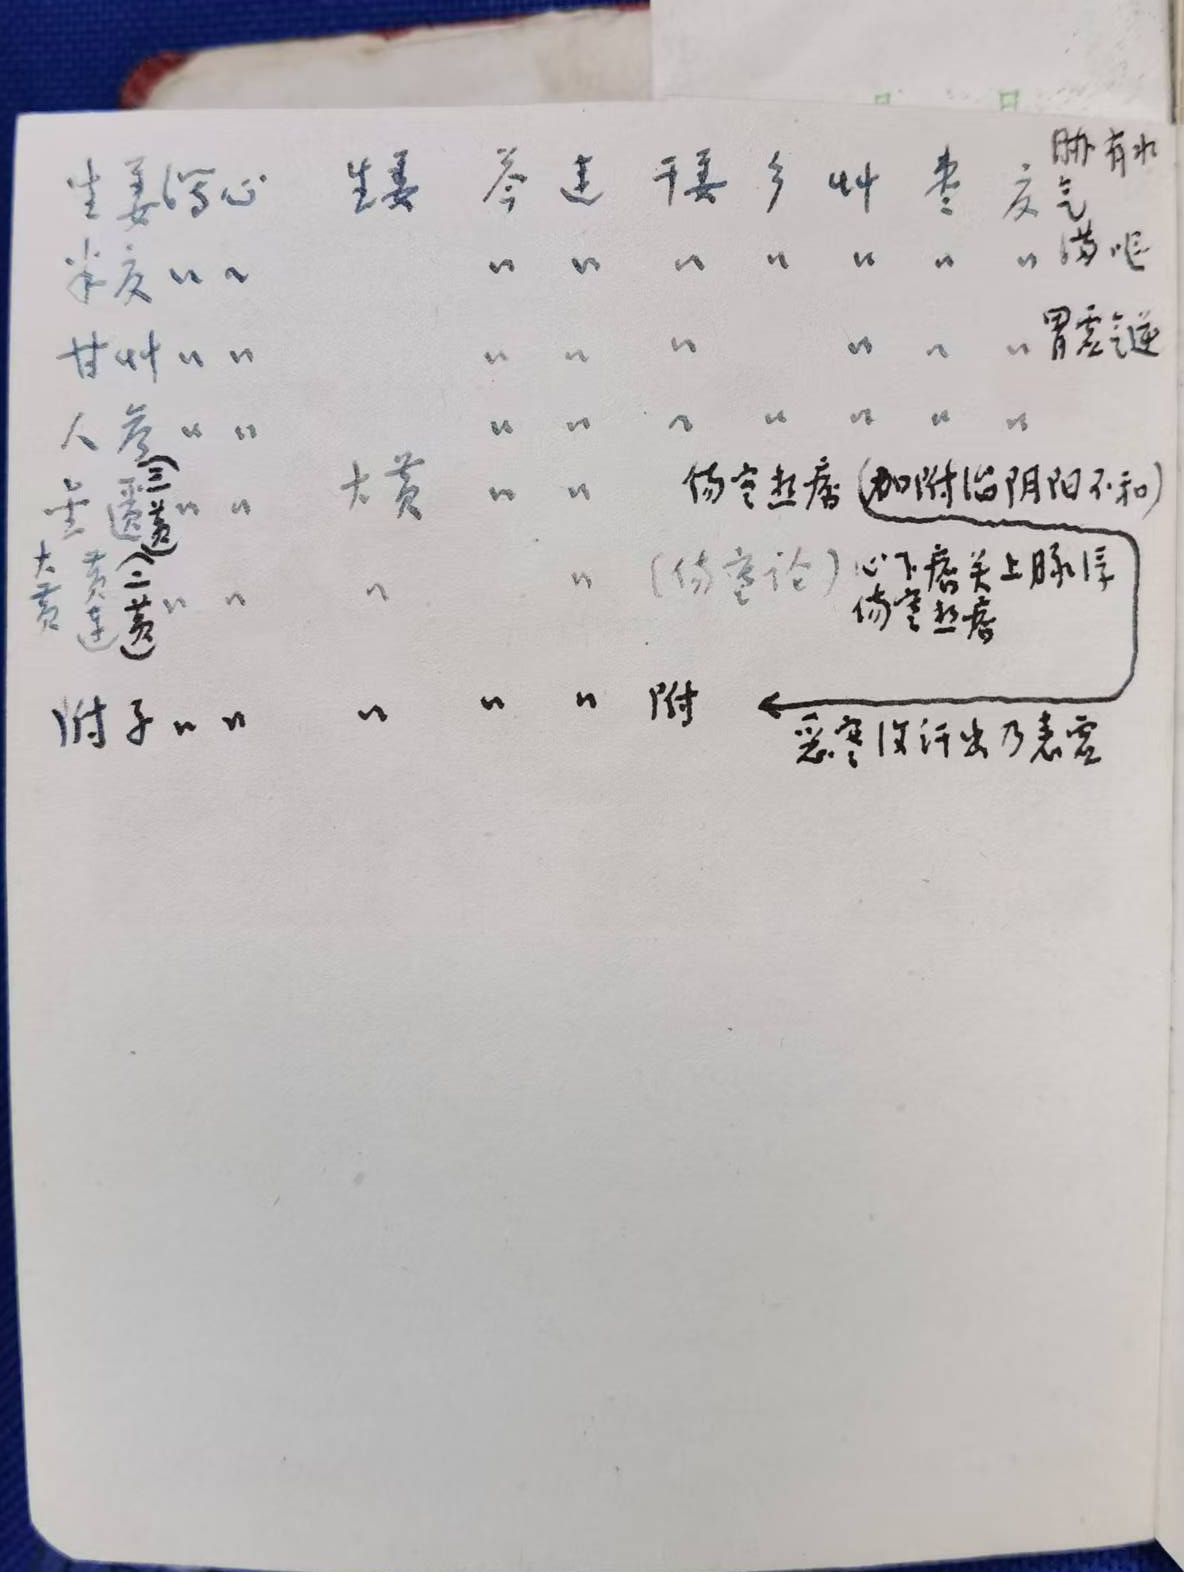 生姜泻心 生姜 芩 连 干姜 参 艸 枣 夏 胁有水气
半夏〃〃 〃 〃 〃 〃 〃 〃 〃 满呕
甘艸〃〃 〃 〃 〃 〃 〃 〃 胃虚气逆
人参〃〃 〃 〃 〃 〃 〃 〃 〃
金匮(三黄)〃〃 大黄 〃 〃 伤寒热痞(加附治阴阳不和)
大黄黄连(二黄)〃〃 〃 〃 (伤寒论) 心下痞关上脉浮
伤寒热痞
附子〃〃 〃 〃 〃 附
恶寒复汗出乃表虚